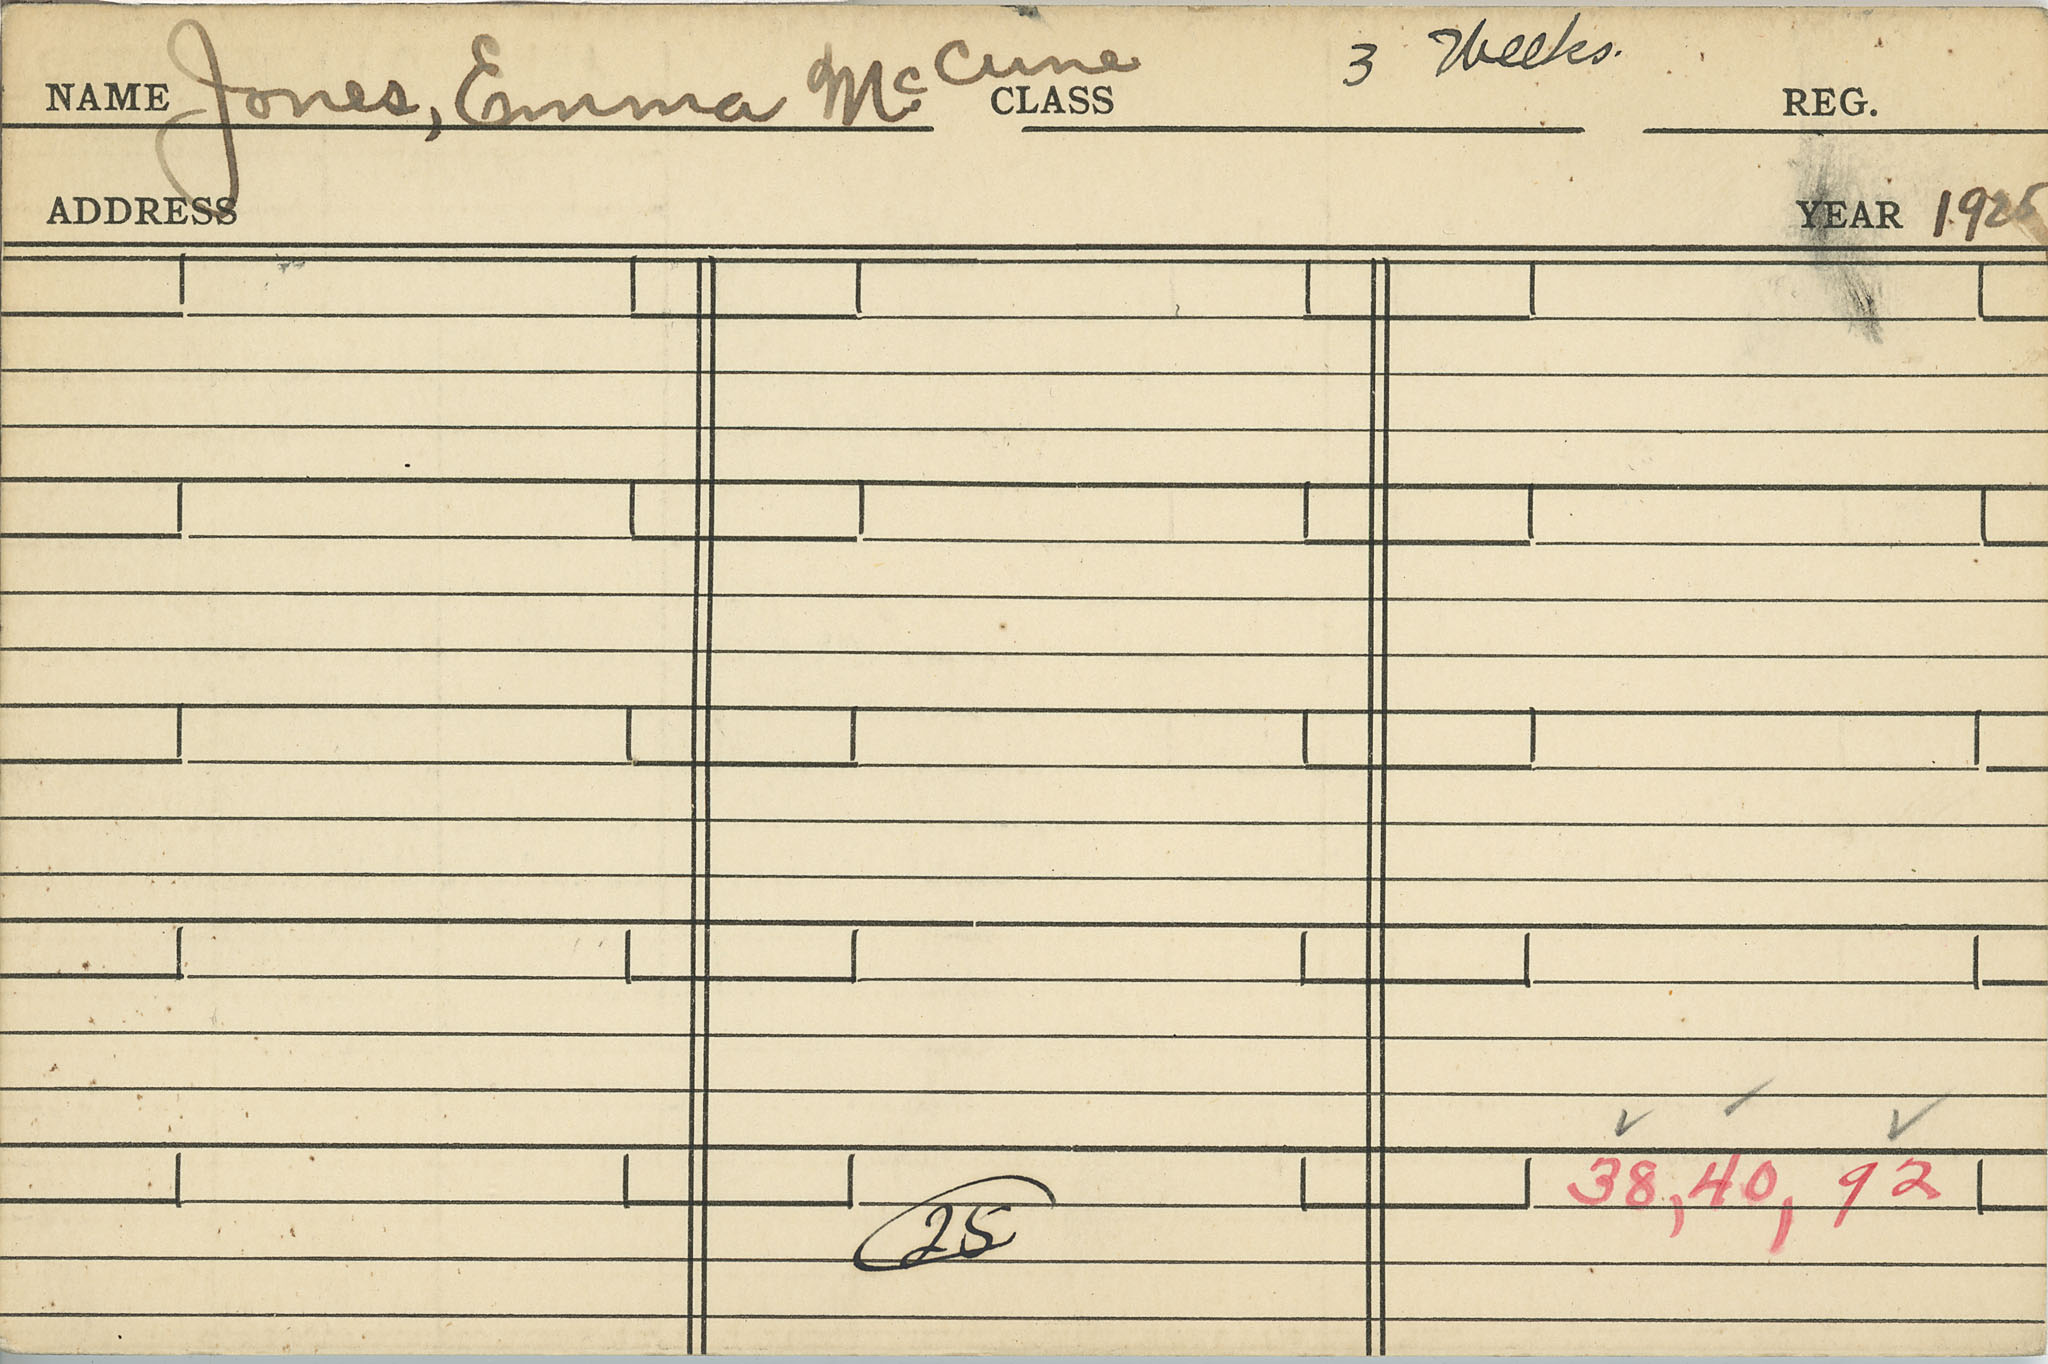 NAME Jones, Emma McCune CLASS 3 Weeks. REG.
ADDRESS YEAR 1925
38, 40, 92
25